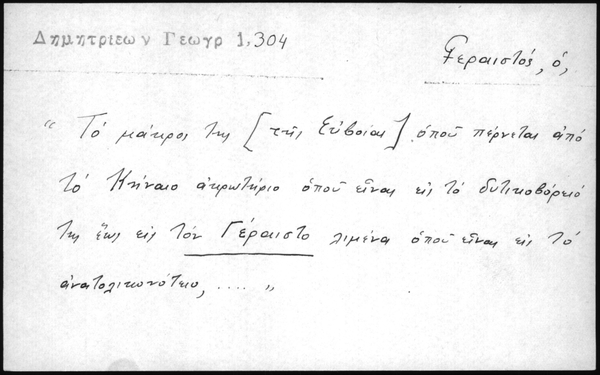 Δημητριεων Γεωγρ 1,304
Γεραιστός, ὁ,
“ Τό μάκρος της [τῆς Εὐβοίας] ὁποῦ πέρνεται ἀπό
τό Κήναιο ἀκρωτήριο ὁποῦ εἶναι εἰς τό δυτικοβόρειό
της ἕως εἰς τόν Γέραιστο λιμένα ὁποῦ εἶναι εἰς τό
ἀνατολικονότειο, .... „